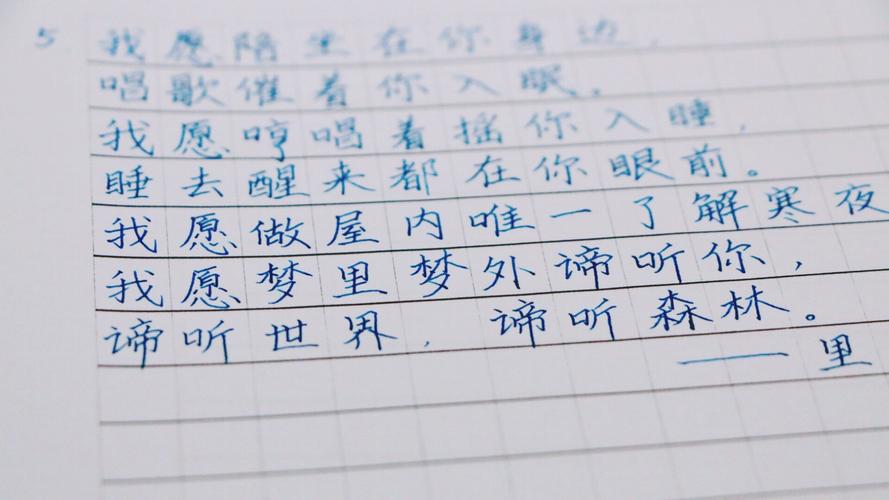 5 我愿陪坐在你身边,
唱歌催着你入眠。
我愿哼唱着摇你入睡,
睡去醒来都在你眼前。
我愿做屋内唯一了解寒夜
我愿梦里梦外谛听你,
谛听世界,谛听森林。
——里